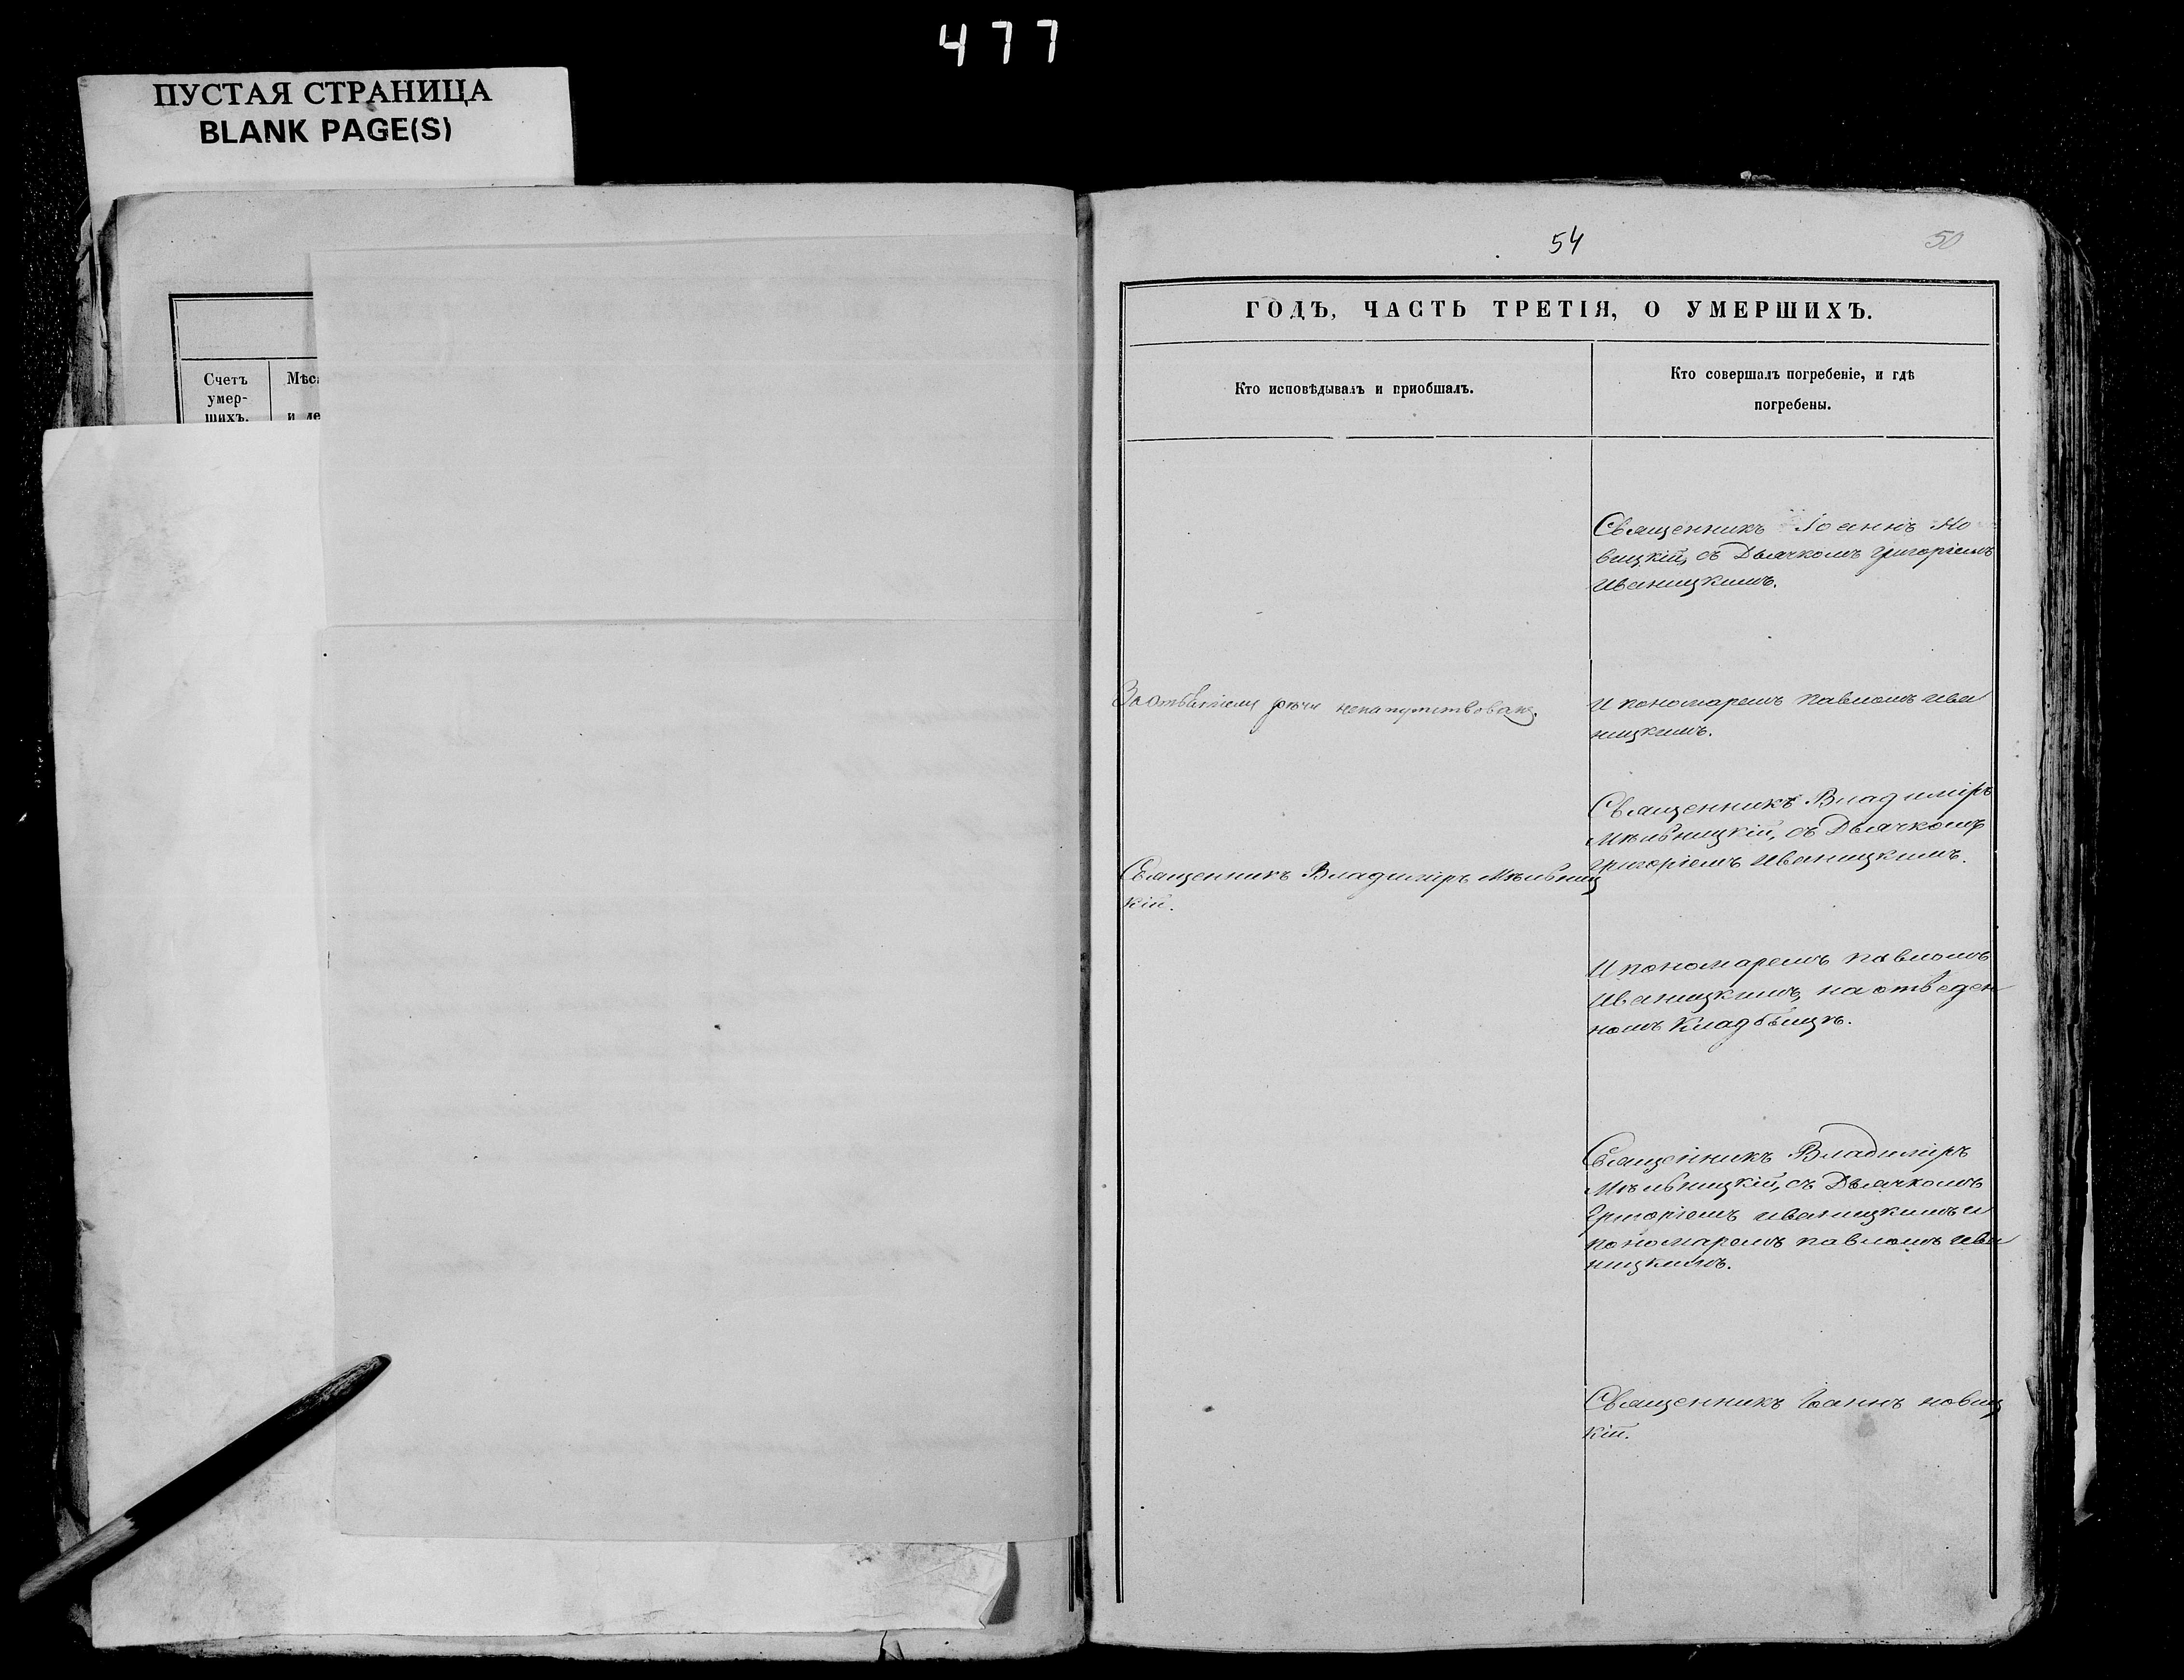 477
ПУСТАЯ СТРАНИЦА
BLANK PAGE(S)
Счетъ
умер-
шихъ.
Мѣс
и де
54
50
ГОДЪ, ЧАСТЬ ТРЕТІЯ, О УМЕРШИХЪ.
Кто исповѣдывалъ и пріобщалъ.
Кто совершалъ погребеніе, и гдѣ
погребены.
Священникъ Іоаннъ Но
вицкій, съ Дьячкомъ Григоріемъ
Иваницкимъ.
ненапутствованъ.
И пономаремъ Павломъ Ива
ницкимъ.
Священникъ Владиміръ
съ Дьячкомъ
Григоріемъ Иваницкимъ.
Священникъ Владиміръ
кій.
И пономаремъ Павломъ
Иваницкимъ, на отведен
номъ Кладбыщѣ.
Священникъ Владиміръ
съ Дьячкомъ
Григоріемъ Иваницкимъ и
пономаремъ Павломъ Ива
ницкимъ.
Священникъ Іоаннъ Новиц
кій.